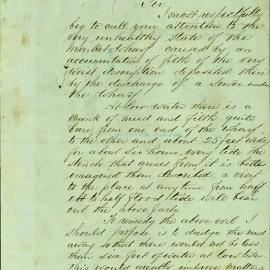 Sir
I most respectfully
beg to call your attention to the
very unhealthy state of the
market wharf caused by an
accumulation of filth of the very
worst description deposited there
by the discharge of a Sewer under
the wharf.
At low water there is a
Bank of mud and filth quite
bare from one end of the wharf
to the other and about 25 feet wide
for about six hours, every tide the
stench that arises from it is better
imagined than described, a visit
to the place at anytime from half
ebb to half flood tide will bear
out the above facts
To remedy the above evil I
should propose is to dredge the mud
away so that there would not be less
than six feet of water at low tide
this would greatly improve matters